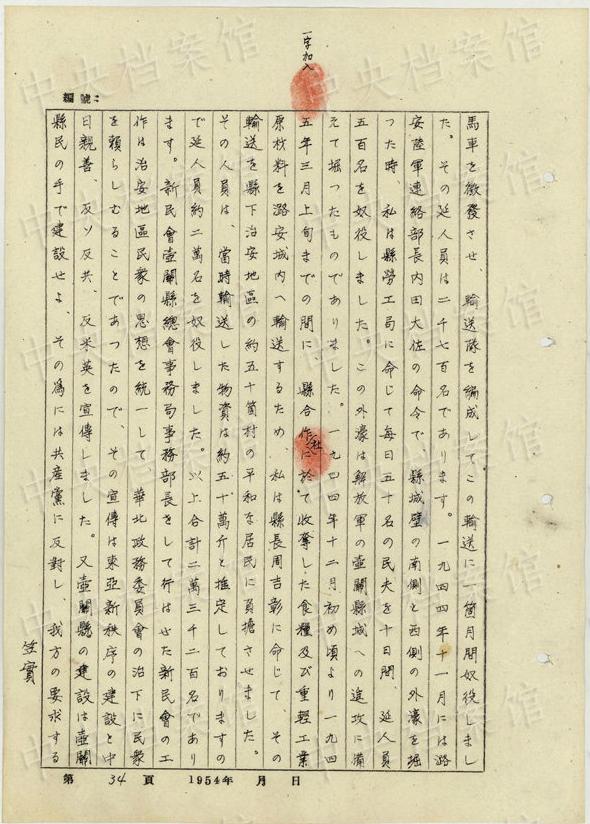 一字加入
編號：
馬車を徵發させ、輸送隊を編成してこの輸送に一箇月間奴役しまし
た。その延人員は二千七百名であります。一九四四年十一月には潞
安陸軍連絡部長内田大佐の命令で、縣城壁の南側と西側の外濠を掘
つた時、私は縣勞工局に命じて毎日五十名の民夫を十日間、延人員
五百名を奴役しました。この外濠は解放軍の壺關縣城への進攻に備
えて掘つたものでありました。一九四四年十二月初め頃より一九四
五年三月上旬までの間に、縣合作社に於て收奪した食糧及び重輕工業
原材料を潞安城内へ輸送するため、私は縣長周吉彰に命じて、その
輸送を縣下治安地區の約五十箇村の平和な居民に負擔させました。
その人員は、當時輸送した物資は約五十萬斤と推定しておりますの
で延人員約二萬名を奴役しました。以上合計二萬三千二百名であり
ます。新民會壺關縣總會事務局事務部長をして行はせた新民會の工
作は治安地區民衆の思想を統一して華北政務委員會の治下に民衆
を頼らしむることであつたので、その宣傳は東亞新秩序の建設と中
日親善、反ソ反共、反米英を宣傳しました。又壺關縣の建設は壺關
縣民の手で建設せよ、その爲には共産黨に反對し、我方の要求する
笠實
第 34 頁 1954年 月 日
中央档案馆